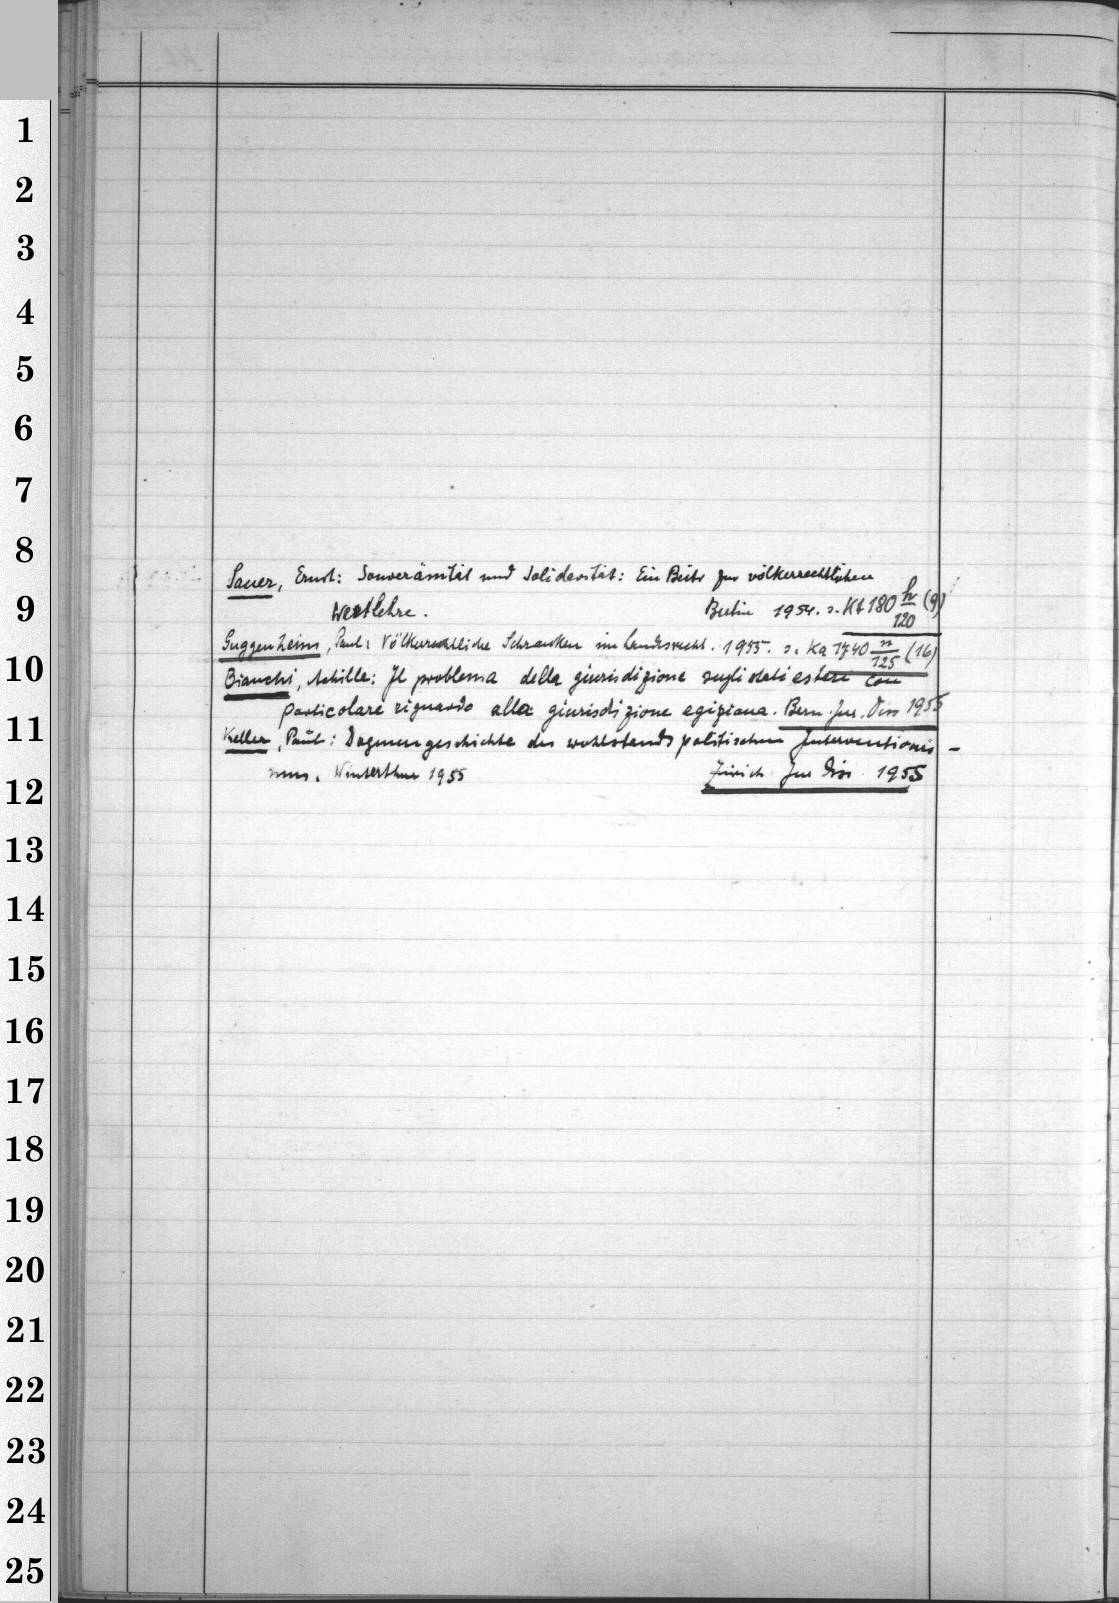 1
2
3
4
5
6
7
8
Sauer, Ernst: Souveränität und Solidarität: Ein Beitr zur völkerrechtlichen
9
Wertlehre. Berlin 1954. s. Kt 180 h/120 (9)
Guggenheim, Paul: Völkerrechtliche Schranken im Landesrecht. 1955. s. Ka 1740 n/125 (16)
10
Bianchi, Achille: Il problema della giurisdizione sugli stati esteri con
particolare riguardo alla giurisdizione egiziana. Bern. Jur. Diss 1955
11
Keller, Paul: Dogmengeschichte des wohlstandspolitischen Interventionis-
mus. Winterthur 1955 Zürich Jur Diss 1955
12
13
14
15
16
17
18
19
20
21
22
23
24
25